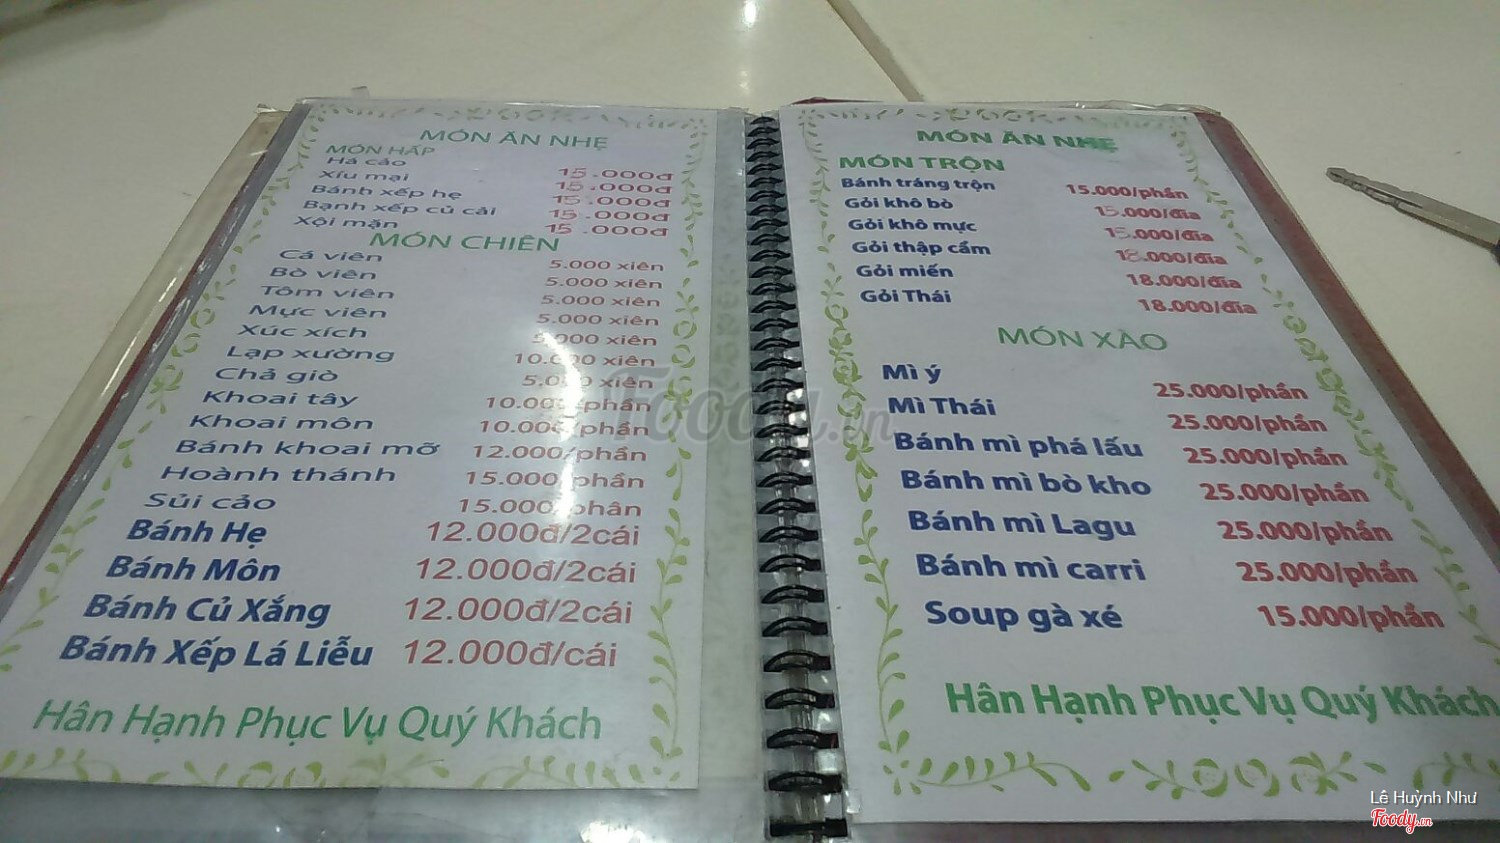 MÓN ĂN NHẸ
MÓN HẤP
Há cảo 15.000đ
Xíu mại 15.000đ
Bánh xếp hẹ 15.000đ
Bạnh xếp củ cải 15.000đ
Xôi mặn 15.000đ
MÓN CHIÊN
Cá viên 5.000 xiên
Bò viên 5.000 xiên
Tôm viên 5.000 xiên
Mực viên 5.000 xiên
Xúc xích 5.000 xiên
Lạp xưởng 10.000 xiên
Chả giò 5.000 xiên
Khoai tây 10.000/phần
Khoai môn 10.000/phần
Bánh khoai mỡ 12.000/phần
Hoành thánh 15.000/phần
Sủi cảo 15.000/phân
Bánh Hẹ 12.000đ/2cái
Bánh Môn 12.000đ/2cái
Bánh Củ Xắng 12.000đ/2cái
Bánh Xếp Lá Liễu 12.000đ/cái
Hân Hạnh Phục Vụ Quý Khách
MÓN ĂN NHẸ
MÓN TRỘN
Bánh tráng trộn 15.000/phần
Gỏi khô bò 15.000/đĩa
Gỏi khô mực 15.000/đĩa
Gỏi thập cẩm 18.000/đĩa
Gỏi miến 18.000/đĩa
Gỏi Thái 18.000/đĩa
MÓN XÀO
Mì ý 25.000/phần
Mì Thái 25.000/phần
Bánh mì phá lấu 25.000/phần
Bánh mì bò kho 25.000/phần
Bánh mì Lagu 25.000/phần
Bánh mì carri 25.000/phần
Soup gà xé 15.000/phần
Hân Hạnh Phục Vụ Quý Khách
Foody.vn
Lê Huỳnh Như
Foody.vn